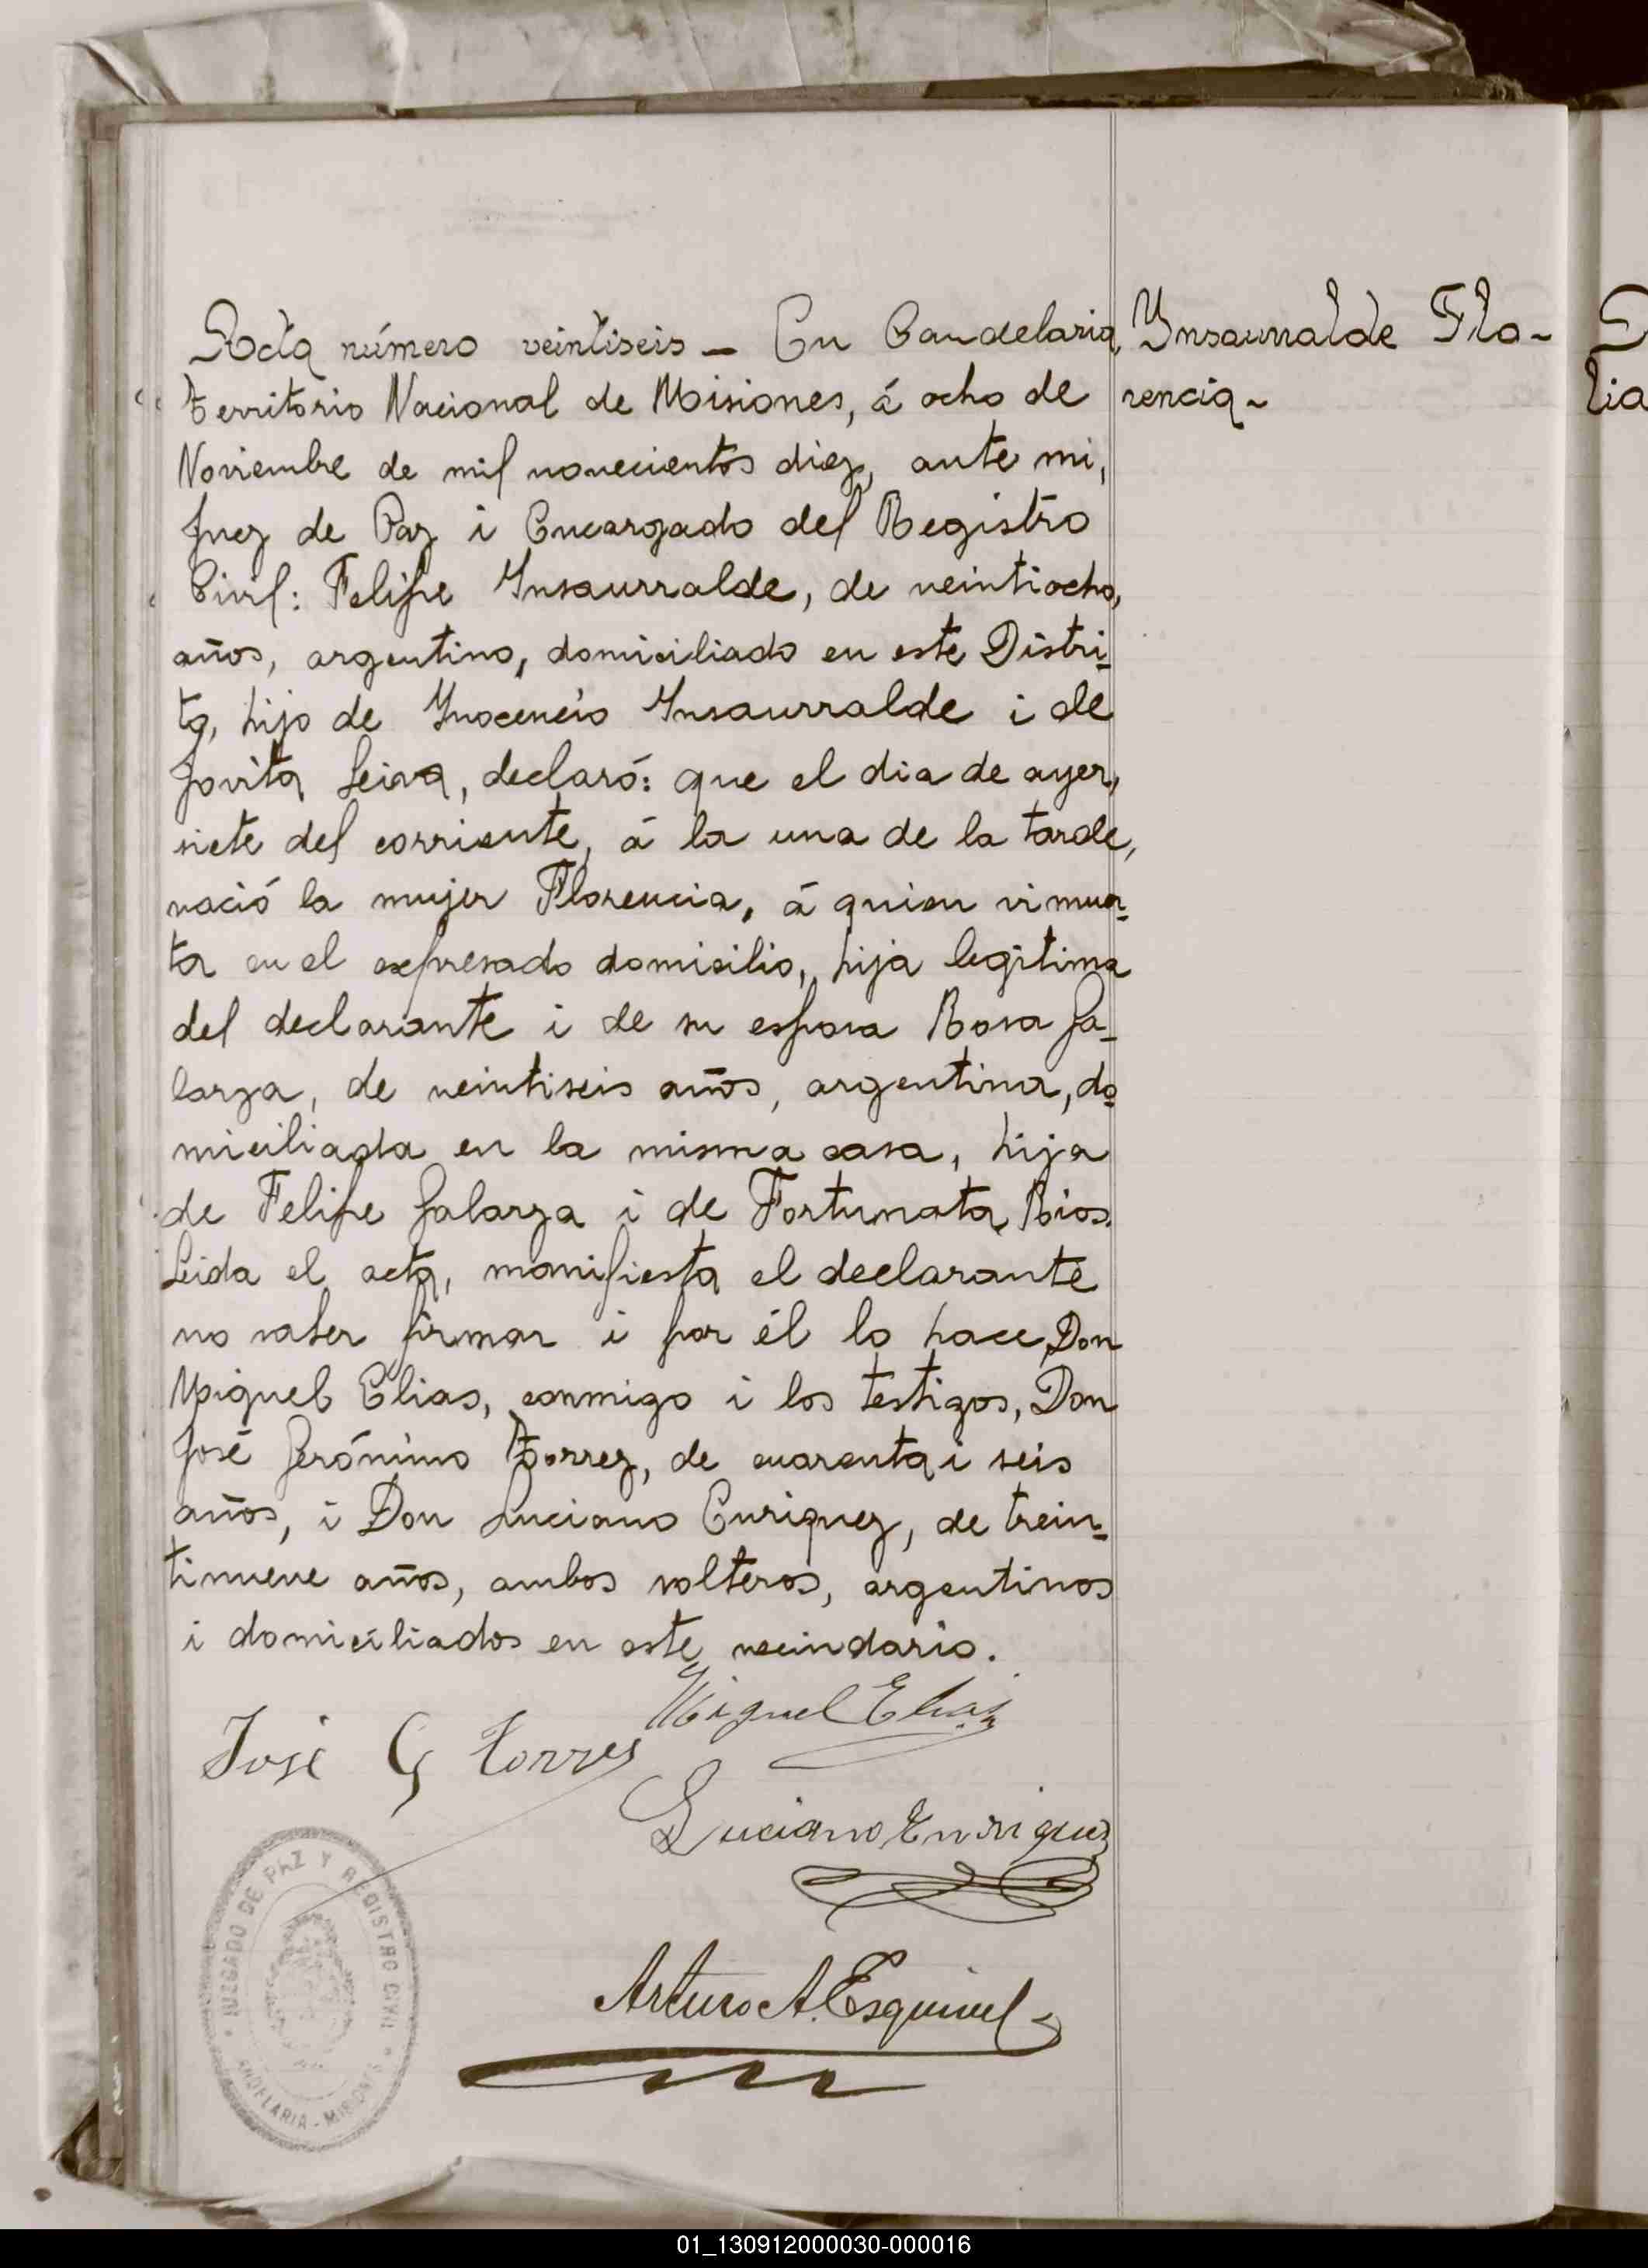 Acta número veintiseis - En Candelaria,
territorio Nacional de Misiones, á ocho de
Noviembre de mil novecientos diez, ante mi,
Juez de Paz i Encargado del Registro
Civil: Felipe Ynsaurralde, de veintiocho,
años, argentino, domiciliado en este Distri-
to, hijo de Ynocencio Ynsaurralde i de
Jovita Leiva, declaró: que el dia de ayer,
siete del corriente, á la una de la tarde,
nació la mujer Florencia, á quien vi muer-
ta en el expresado domicilio, hija legitima
del declarante i de su esposa Rosa Ga-
larza, de veintiseis años, argentina, do-
miciliada en la misma casa, hija
de Felipe Galarza i de Fortunata Rios.
Leida el acta, manifiesta el declarante
no saber firmar i por él lo hace Don
Miguel Elias, conmigo i los testigos, Don
José Jerónimo torrez, de cuarenta i seis
años, i Don Luciano Enriquez, de trein-
tinueve años, ambos solteros, argentinos
i domiciliados en este vecindario.
Ynsaurralde Flo-
rencia -
lia
Miguel Elias
José G Torres
Luciano Enriquez
Arturo A. Esquivel
JUZGADO DE PAZ Y REGISTRO CIVIL
CANDELARIA - MISIONES
01_130912000030-000016